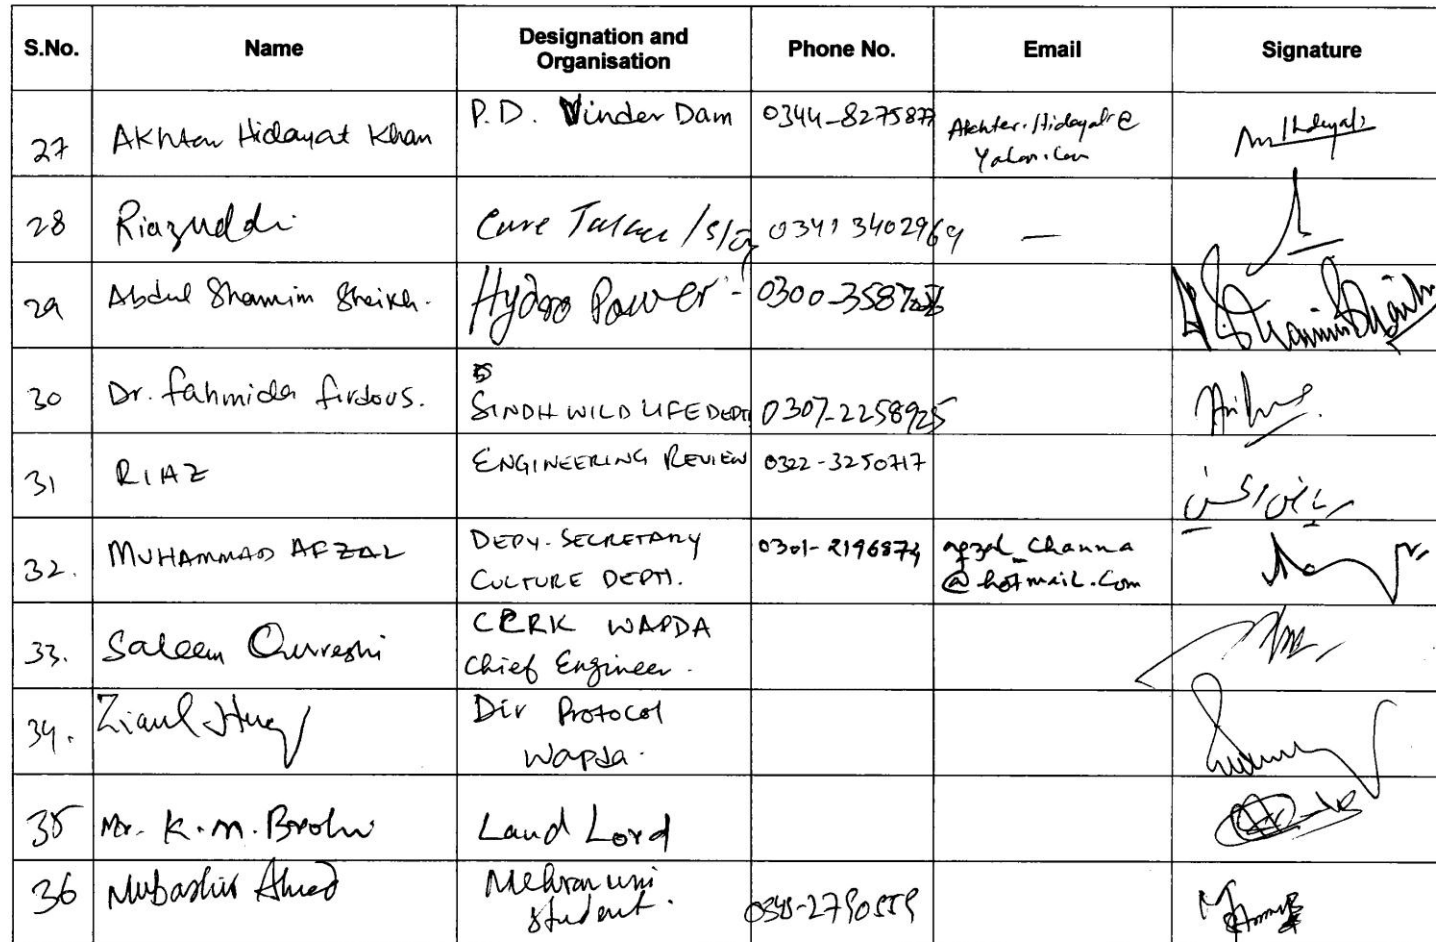 S.No. Name Designation and Organisation Phone No. Email Signature
27 Akhtar Hidayat Khan P.D. Vinder Dam 0344-8275877 Akhter.Hidayat@
28 Riazuddi Care Taker 0341 3402969 —
29 Abdul Shamim Sheikh. Hydro Power
30 Dr. Fahmida firdous. SINDH WILD LIFE DEPTT 0307-2258925
31 RIAZ ENGINEERING REVIEW 0322-3250717
32. MUHAMMAD AFZAL DEPY. SECRETARY 0301-2196874 afzal_channa
CULTURE DEPTT. @hotmail.com
33. Saleem Qureshi CERK WAPDA
Chief Engineer.
34. Ziaul Huq Dir Protocol
Wapda.
35 Mr. K.M. Brohi Land Lord
36 Mubashir Ahmed Mehran uni
student.